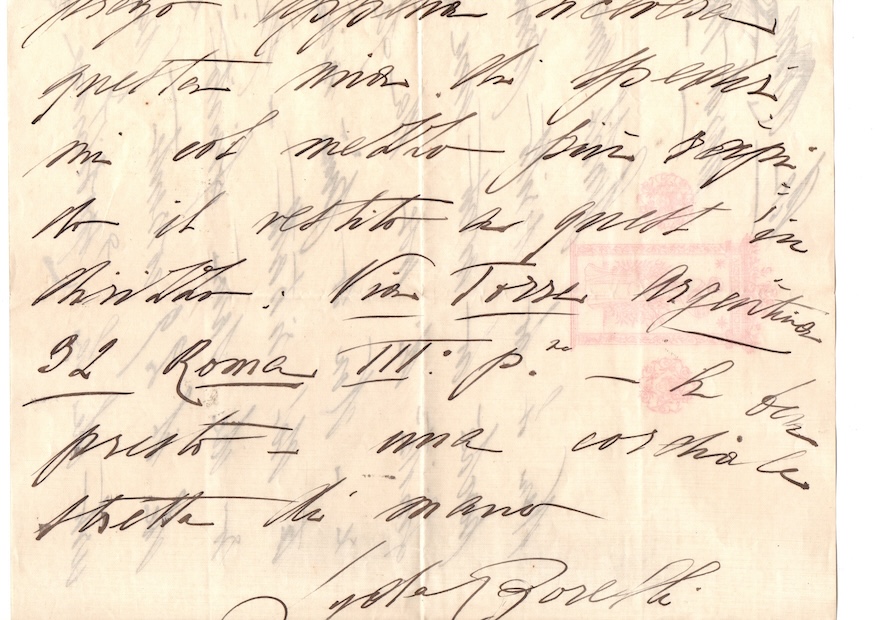 prego appena ricevera
questa mia di spedir=
mi col mezzo più rapi=
do il vestito a quest' in
dirizzo: Via Torre Argentina
32 Roma III.º p.no – A ben
presto – una cordiale
stretta di mano
Lyda Borelli